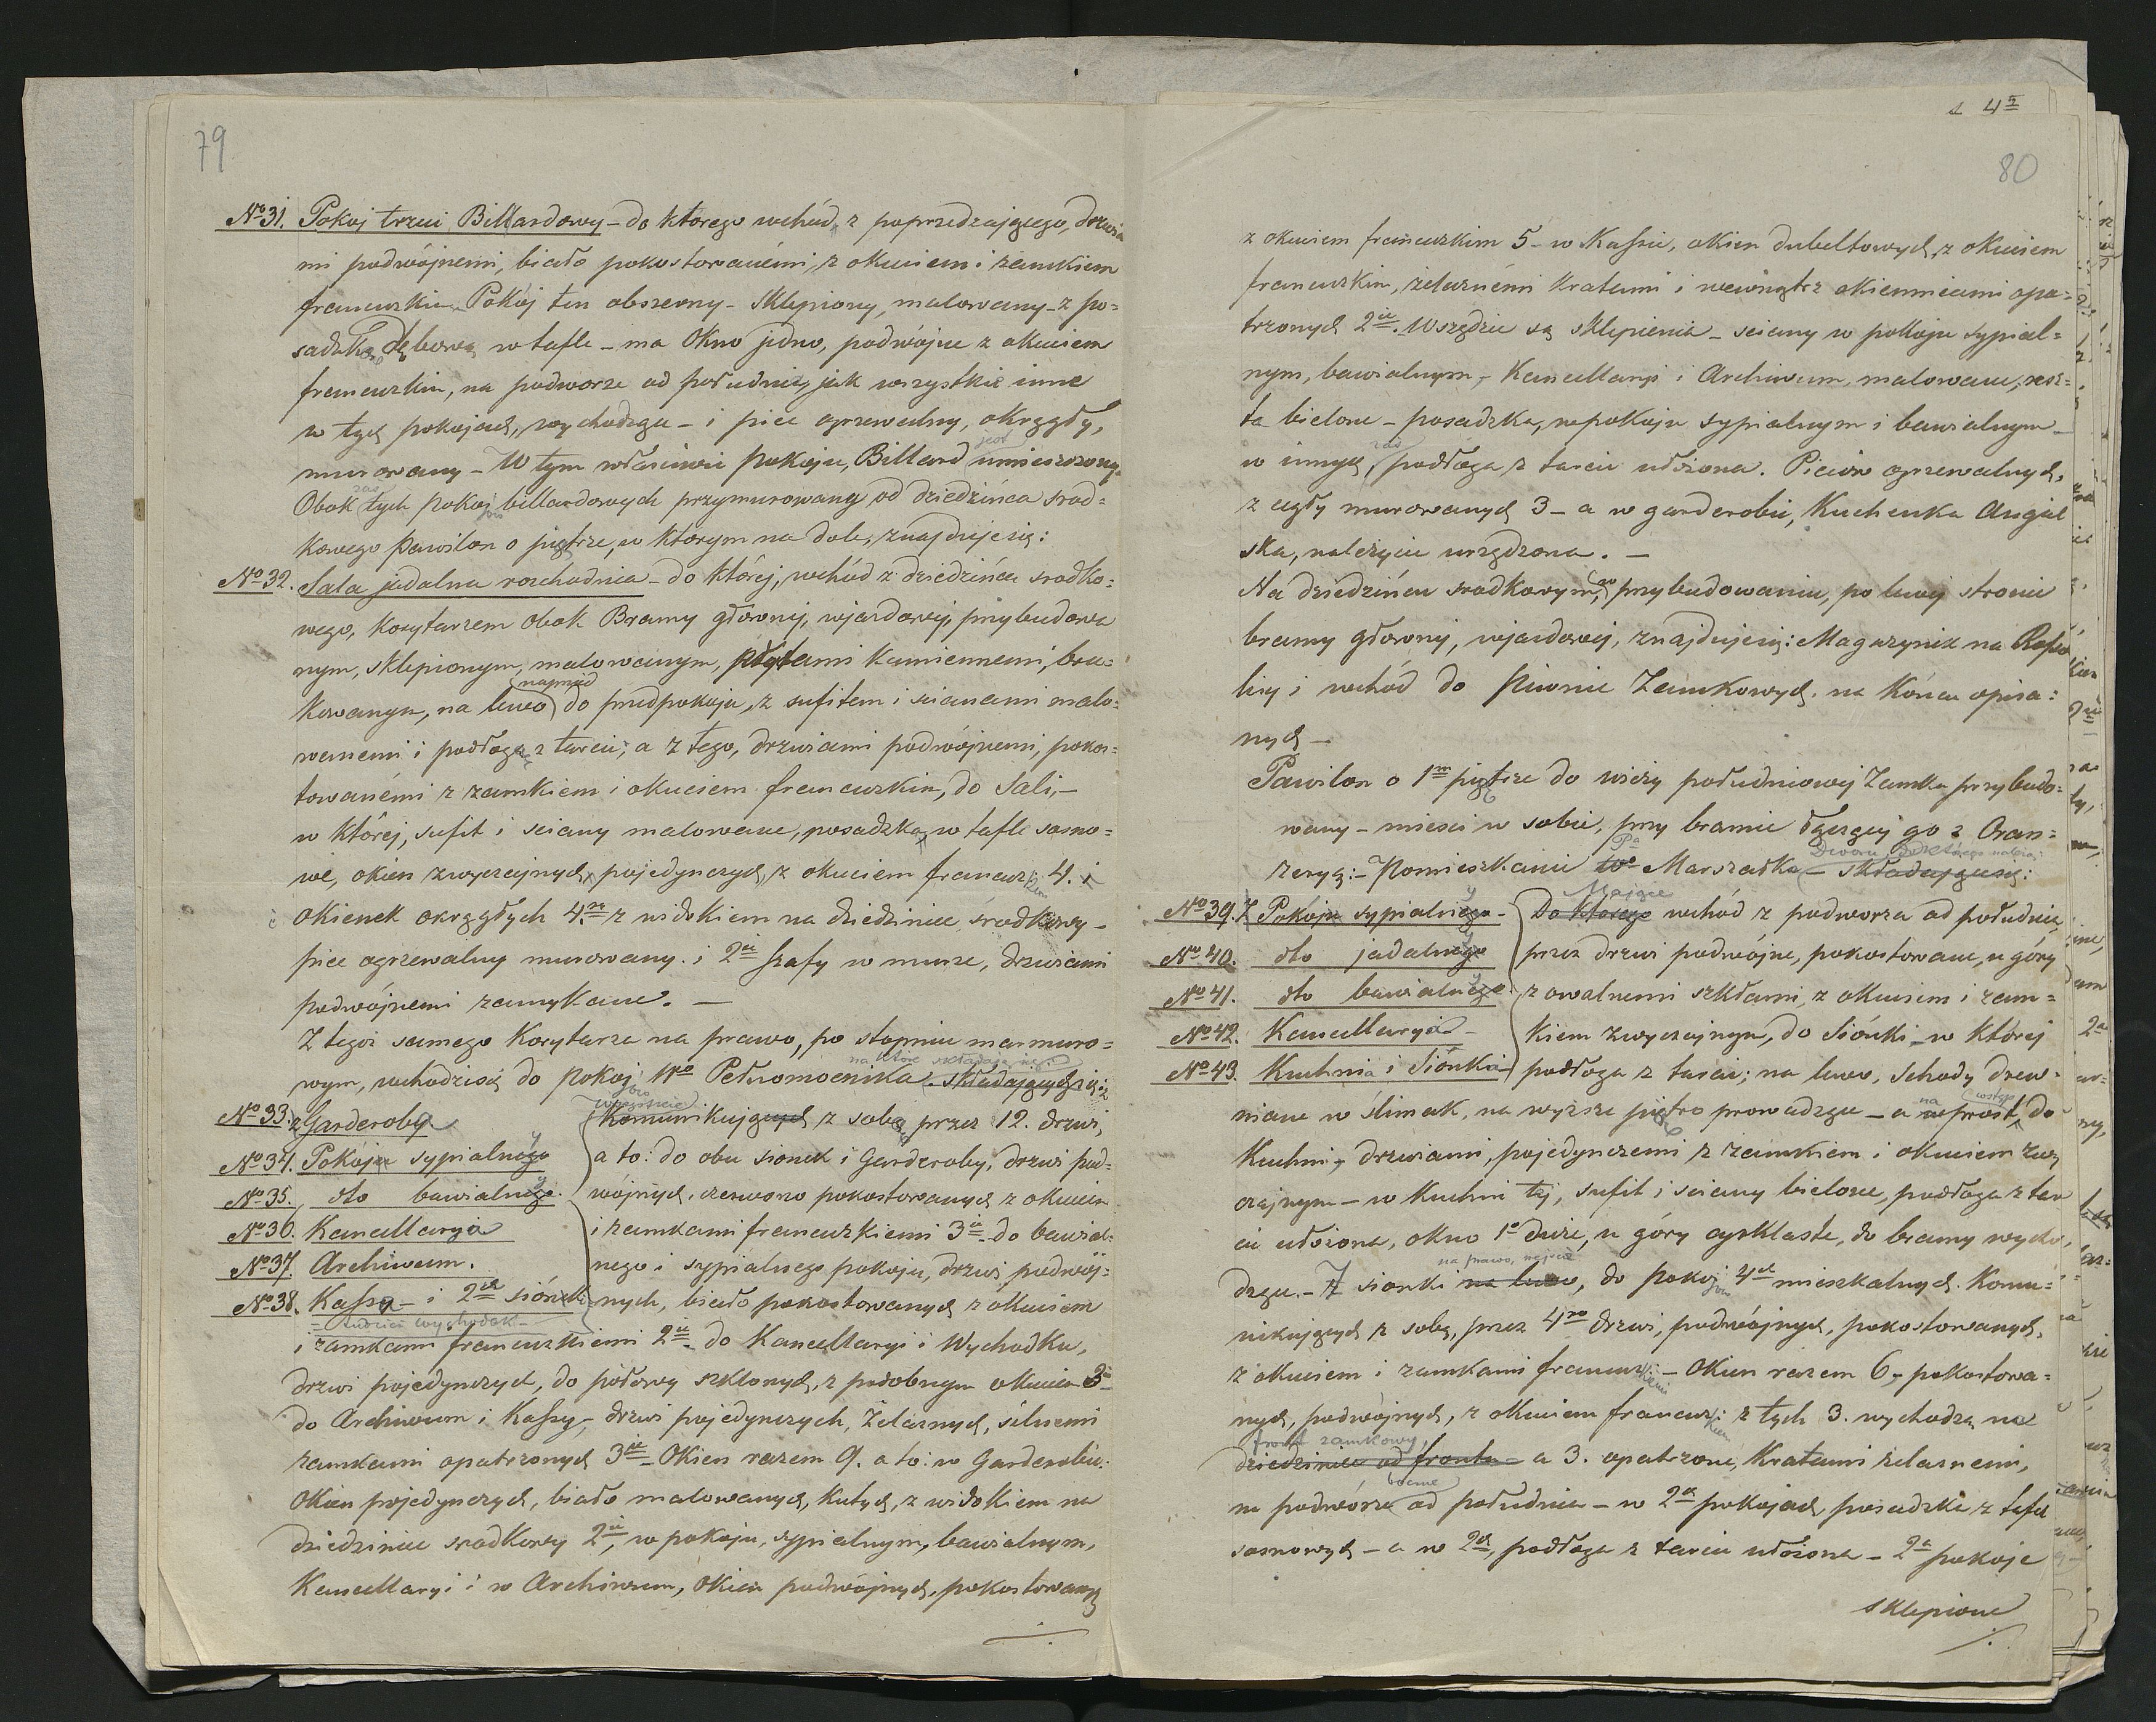 79
No 31. Pokoj trzeci Billardowy – do ktorego wchód, z poprzedzającego, drzwia
mi podwójnemi, biało pokostowanémi, z okuciem i zamkiem
francuzkim. Pokój ten obszerny – Sklepiony, malowany – z po=
sadzką dębową w tafle – ma Okno jedno, podwójne z okuciem
francuzkim, na podworze od południa, jak wszystkie inne
w tych pokojach, wychodzące – i piec ogrzewalny, okrągły,
jest
murowany – W tym właściwie Pokoju, Billard umieszczony
zaś
Obok tych pokoj billardowych przymurowany od dziedzińca srod=
jów
kowego Pawilon o piętrze, w ktorym na dole, znajduje się:
No 32. Sala jadalna rozchodnia – do której, wchód z dziedzińca srodko=
wego, Korytarzem obok Bramy głownej, wjazdowej, przybudowa
nym, sklepionym, malowanym, płytami Kamiennemi, bru=
naprzód
kowanym, na lewo do przedpokoju, z sufitem i scianami malo=
wanemi i podłogą z tarcic, a z tego, drzwiami podwójnemi, pokos=
towanémi z zamkiem i okuciem francuzkim, do Sali, –
w której, sufit i sciany malowane, posadzka, w tafle sosno=
we, okien zwyczajnych, pojedynczych, z okuciem francuz: 4. i
kim
okienek okrągłych 4m z widokiem na dziedziniec środkowy –
piec ogrzewalny murowany. i 2ie Szafy w murze, drzwiami
podwójnemi zamykane. –
Z tegoż samego Korytarza na prawo, po stopniu marmuro=
na które składają się
wym, wchodzi się do pokoj Wo Pełnomocnika składających się z
jów
No 33. z Garderoby
wszystkie
Komunikujących z sobą przez 12. drzwi,
No 34. Pokoju sypialnego
a to: do obu sionek i Garderoby, drzwi pod=
No 35. dto bawialnego.
wójnych, czerwono pokostowanych z okuciem
No 36. Kancellaryia
i zamkami francuzkiemi 3ie do bawial=
No 37. Archiwum.
nego i sypialnego pokoju, drzwi podwój=
No 38. Kassa – i 2ch siónek
nych, biało pokostowanych z okuciem
tudzież wychodek –
i zamkami francuzkiemi 2ie do Kancellaryi i Wychodku,
drzwi pojedynczych, do połowy szklonych, z podobnym okuciem 3ie
do Archiwum i Kassy, – drzwi pojedynczych, Żelaznych, silnemi
zamkami opatrzonych 3ie – Okien razem 9. a to: w Garderobie
Okien pojedynczych, biało malowanych, Kutych, z widokiem na
dziedziniec srodkowy 2ie, w pokoju, sypialnym, bawialnym,
Kancellaryi i w Archiwum, Okien podwójnych, pokostowanych
80
z okuciem francuzkim 5 – w Kassie, okien dubeltowych, z okuciem
francuzkim, żelaznémi kratami i wewnątrz okiennicami opa=
trzonych 2ie. Wszędzie są sklepienia – sciany w pokoju sypial=
nym, bawialnym, – Kancellaryi i Archiwum, malowane, resz=
ta bielone – posadzka, w pokoju sypialnym i bawialnym –
zaś
w innych, podłoga z tarcic ułożona. Pieców ogrzewalnych,
z cegły murowanych 3 – a w garderobie, Kuchenka Angiel
ska, należycie urządzona. –
Na dziedzińcu srodkowym, przybudowaniu, po lewej stronie
bramy głownej, wjazdowej, znajduje się: Magazynik na
i wchód do Piwnic Zamkowych, na Końcu opisa=
nych –
Pawilon o 1m piętrze do wieży południowej Zamku przybudo=
wany – miesci w sobie, przy bramie łączącej go z Oran=
Pa
Dworu, do którego należą:
żeryą: – Pomieszkanie Wo Marszałka – składające się:
No 39. Z Pokoju sypialnego –
Mające
Do ktorego wchód z podworza od południa,
No 40. dto jadalnego
przez drzwi podwójne, pokostowane, u góry
No 41. dto bawialnego
z owalnemi szkłami, z okuciem i zam=
No 42. Kancellaryia –
kiem zwyczajnym, do Siónki – w której
No 43. Kuchnia i Siónka –
podłoga z tarcic; na lewo, Schody drew=
na
wniane w ślimak, na wyższe piętro prowadzące – a wprost, do
Kuchni, drzwiami, pojedynczemi z zamkiem i okuciem zwy
czajnym – w Kuchni tej, sufit i sciany bielone, podłoga z tar
cic ułożona, okno 1o duże, u góry cyrklaste, do bramy wycho
na prawo, wejście
dzące. – Z sionki na lewo, do pokoj 4ch mieszkalnych. Komu=
jów
nikujących z sobą, przez 4ro drzwi, podwójnych, pokostowanych,
z okuciem i zamkami francuz: – Okien razem 6, – pokostowa=
kiemi
nych, podwójnych, z okuciem francuz: z tych 3. wychodzą na
kiem
front zamkowy,
dziedziniec od frontu – a 3. opatrzone, Kratami żelaznemi,
boczne
na podwórze od południa – w 2ch pokojach, posadzki z tafel
sosnowych – a w 2ch, podłoga z tarcic ułożona – 2a pokoje
sklepione